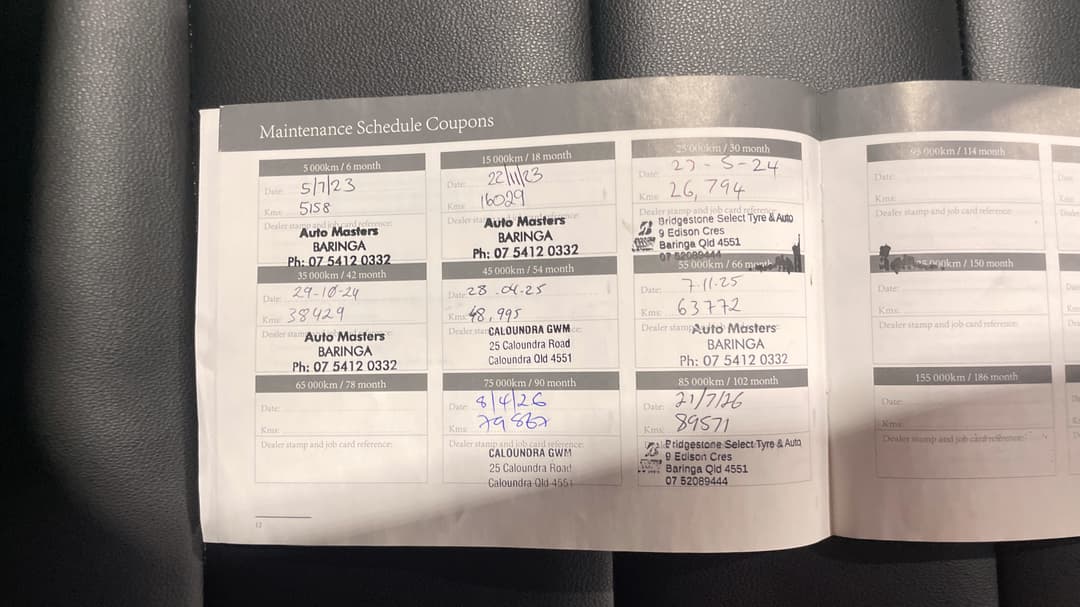 Maintenance Schedule Coupons
5 000km / 6 month
Date: 5/7/23
Kms: 5158
Dealer stamp and job card reference:
Auto Masters
BARINGA
Ph: 07 5412 0332
15 000km / 18 month
Date: 22/11/23
Kms: 16029
Dealer stamp and job card reference:
Auto Masters
BARINGA
Ph: 07 5412 0332
25 000km / 30 month
Date: 27-5-24
Kms: 26,794
Dealer stamp and job card reference:
Bridgestone Select Tyre & Auto
9 Edison Cres
Baringa Qld 4551
07 52089444
35 000km / 42 month
Date: 29-10-24
Kms: 38429
Dealer stamp reference:
Auto Masters
BARINGA
Ph: 07 5412 0332
45 000km / 54 month
Date: 28.04.25
Kms: 48,995
Dealer stamp
CALOUNDRA GWM
25 Caloundra Road
Caloundra Qld 4551
55 000km / 66 month
Date: 7.11.25
Kms: 63772
Dealer stamp reference:
Auto Masters
BARINGA
Ph: 07 5412 0332
65 000km / 78 month
Date:
Kms:
Dealer stamp and job card reference:
75 000km / 90 month
Date: 8/4/26
Kms: 79867
Dealer stamp and job card reference:
CALOUNDRA GWM
25 Caloundra Road
Caloundra Qld 4551
85 000km / 102 month
Date: 21/7/26
Kms: 89571
Bridgestone Select Tyre & Auto
9 Edison Cres
Baringa Qld 4551
07 52089444
12
95 000km / 114 month
Date:
Kms:
Dealer stamp and job card reference:
000km / 150 month
Date:
Kms:
Dealer stamp and job card reference:
155 000km / 186 month
Date:
Kms:
Dealer stamp and job card reference: